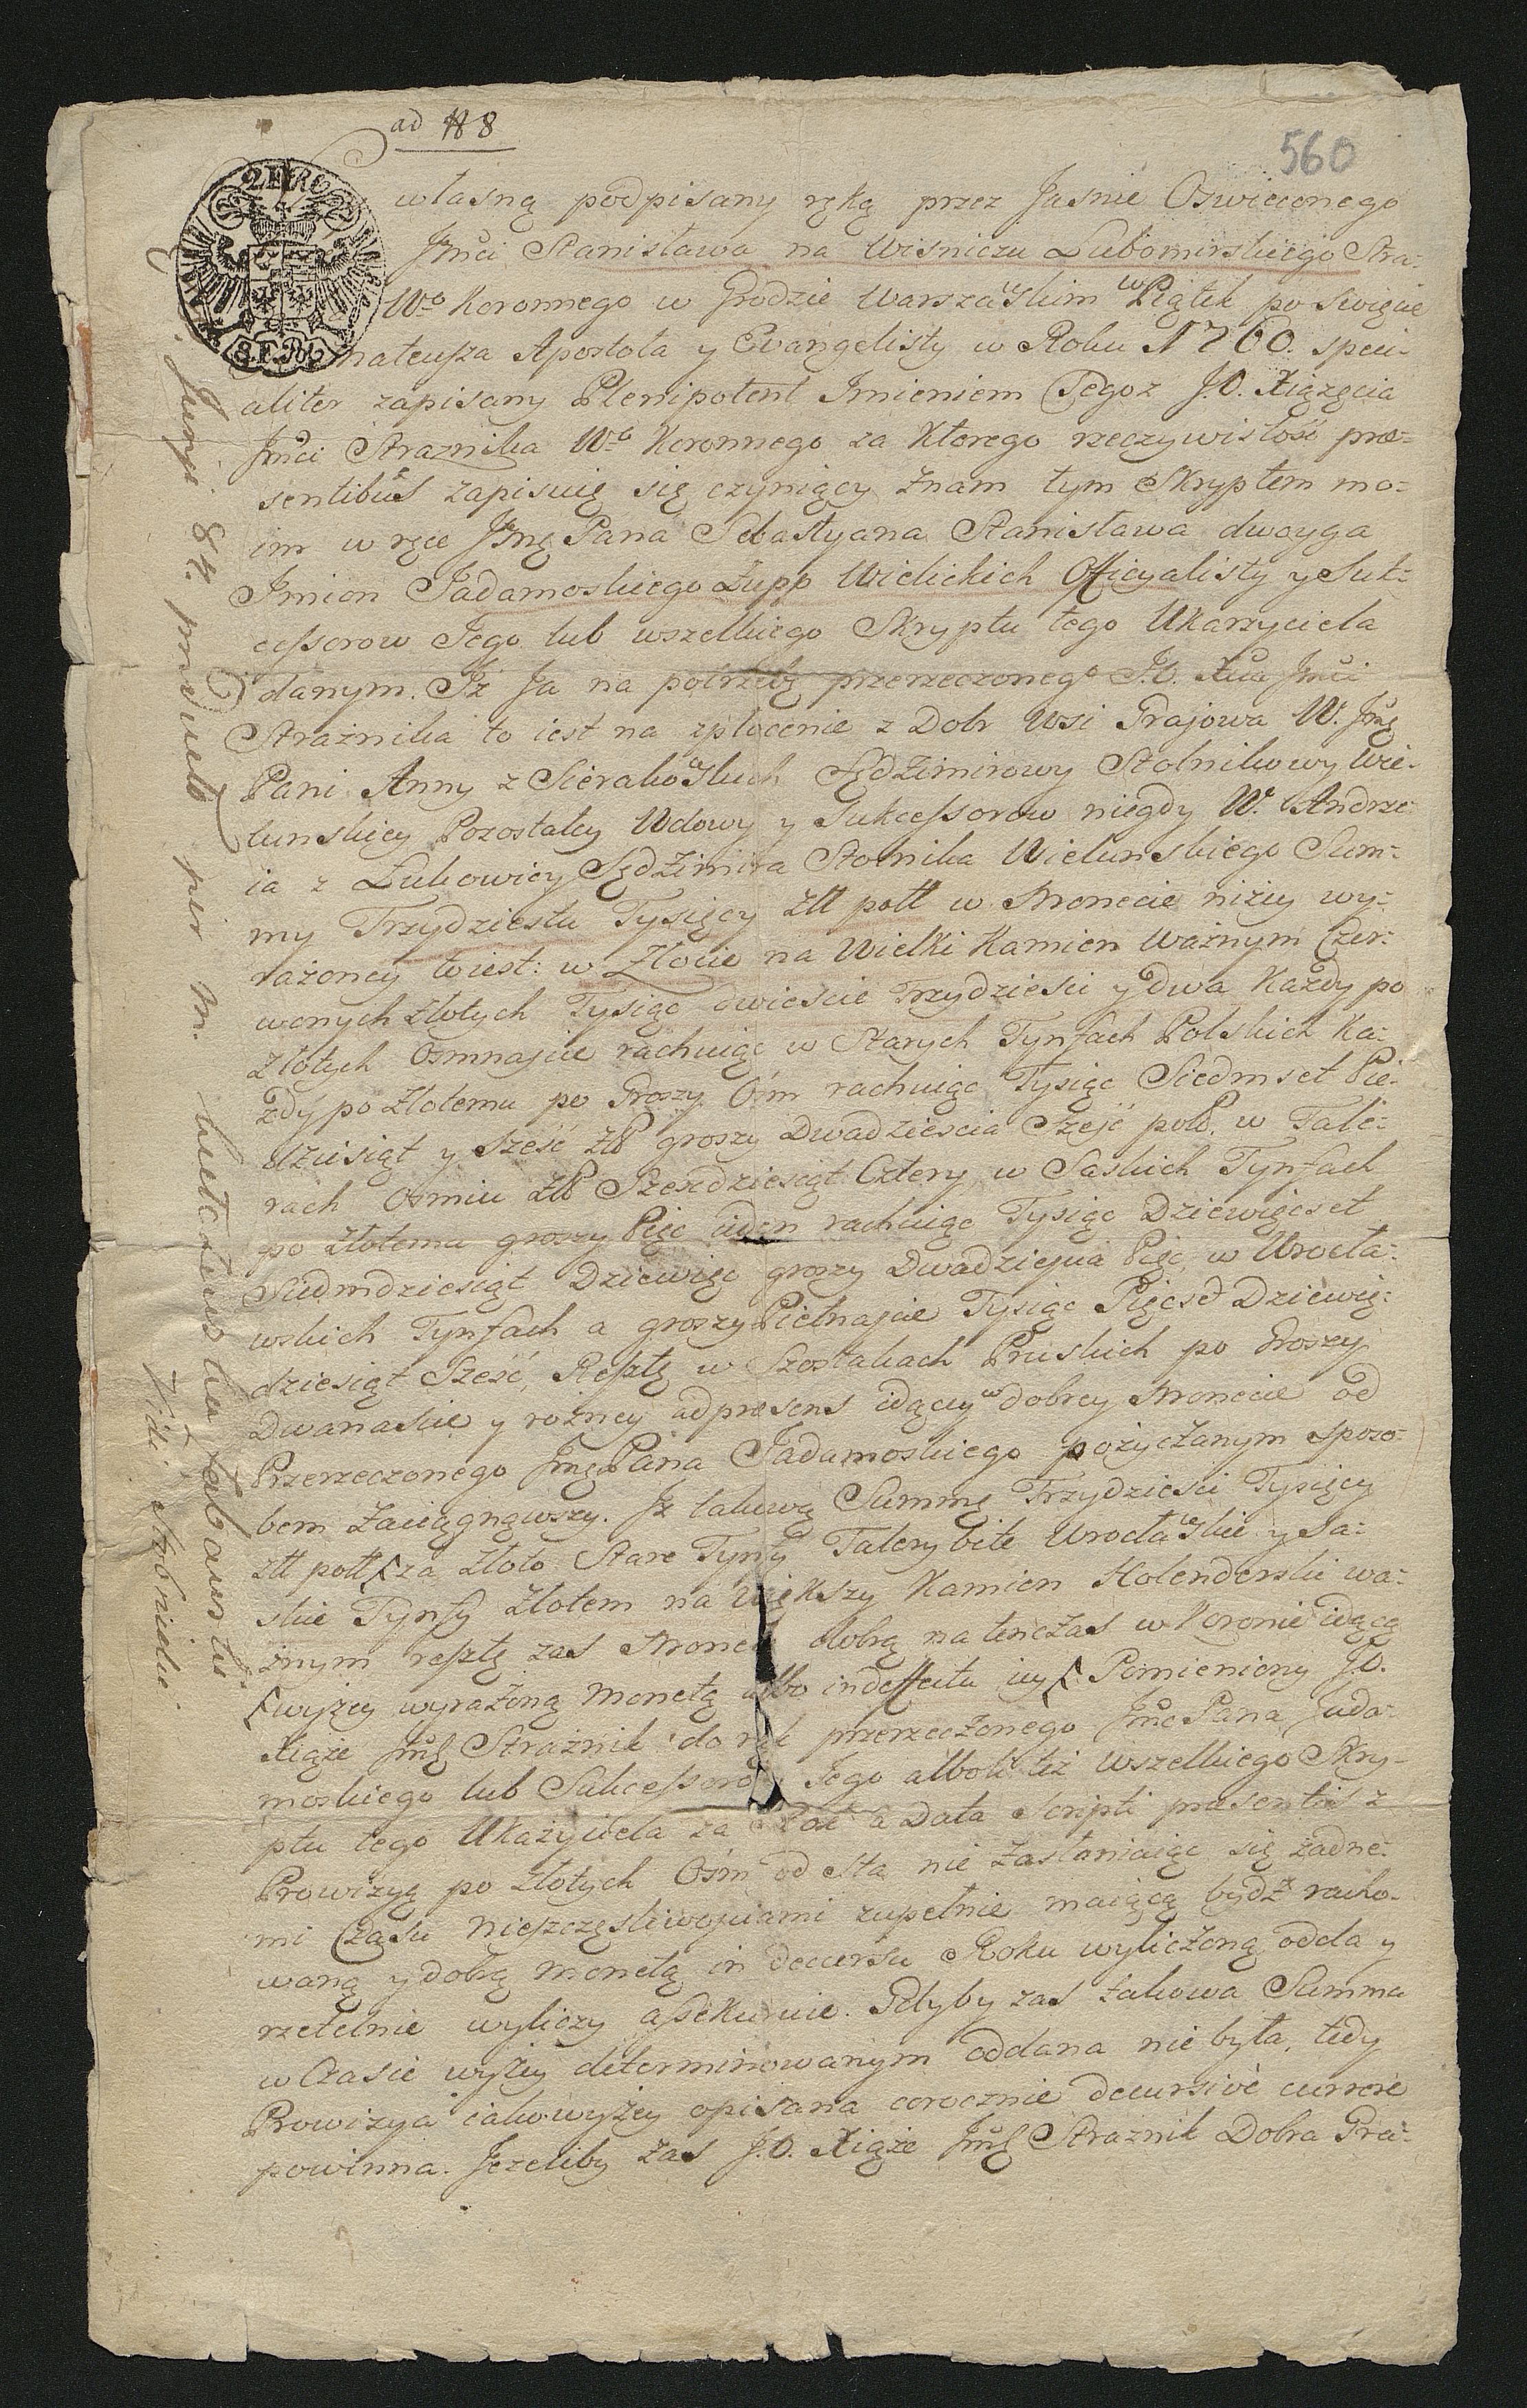 ad 188
560
2 FR 6
własną podpisany ręką przez Jasnie Oswieconego
Jmci Stanisława na Wisniczu Lubomirskiego Stra-
Wo Koronnego w Grodzie Warszawskim w Piątek po Swięcie
Mateusza Apostoła y Evangelisty w Roku 1760. speci-
aliter zapisany Plenipotent Imieniem Tegoz J.O. Xiązęcia
Jmci Straznika Wo Koronnego za Ktorego rzeczywistość præ-
sentibus zapisuię się czyniący Znam tym Skryptem mo-
im w ręce Jmę Pana Sebastyana Stanisława dwoyga
Imion Jadamoskiego Zupp Wielickich Officyalisty y Suk-
cessorow Jego lub wszelkiego Skryptu tego Ukazyciela
danym. Iż Ja na potrzebę przerzeczonego J.O. Xcia Jmci
Strażnika to iest na spłacenie z Dobr Wsi Grajowa W. Jmę
Pani Anny z Sierakowskich Sędzimirowy Stolnikowy Wie-
lunskiey Pozostałey Wdowy y Sukcessorow niegdy W. Andrze-
ia z Lukowicy Sędzimira Stolnika Wielunskiego Sum-
my Trzydziestu Tysięcy Złł poll w Monecie niżey wy-
rażoney to iest: w Złocie na Wielki Kamien Ważnym Czer-
wonych Złotych Tysiąc dwiescie Trzydziesci y dwa Każdy po
Złotych Osmnascie rachuiąc w Starych Tynfach Polskich Ka-
żdy po Złotemu po Groszy Ośm rachuiąc Tysiąc Siedmset Pię-
dziesiąt y Sześć Złł groszy Dwadziescia Sześć poll. w Tale-
rach Osmiu Złł Szescdziesiąt Cztery, w Saskich Tynfach
po Złotemu groszy Pięć ieden rachuiąc Tysiąc Dziewięcset
Siedmdziesiąt Dziewięć groszy Dwadziescia Pięć, w Wrocła-
wskich Tynfach a groszy Pietnascie Tysiąc Pięcset Dziewię-
dziesiąt Sześć, Resztę w Szostakach Pruskich po Groszy
Dwanascie y rożney ad præsens idącey w dobrey Monecie od
Przerzeczonego Jmę Pana Jadamoskiego pożyczanym sposo-
bem Zaciągnąwszy. Iz takową Summę Trzydziesci Tysięcy
Złł poll za Złoto Stare Tynfy Talery bite Wrocławskie y Sa-
skie Tynfy Złotem na Większy Kamien Holenderski wa-
żnym resztę zas Monetą dobrą na tenczas w Koronie idącą
wyżey wyrażoną Monetą albo in deffectu iey Pomieniony J.O.
Xiąże Jmć Strażnik do rąk przerzeczonego Jmć Pana Jada-
moskiego lub Sukcessorow Jego albo li też Wszelkiego Skry-
ptu tego Ukażyciela za Rok a Data Scripti præsentis z
Prowizyą po Złotych Ośm od Sta nie Zasłaniaiąc się żadne-
mi Czasu nieszczęsliwosciami zupełnie maiącą bydź racho-
waną y dobrą Monetą in decursu Roku wyliczoną odda y
rzetelnie wyliczy assekuruie. Gdyby zas takowa Summa
w Czasie wyżey determinowanym oddana nie była, tedy
Prowizya iako wyżey opisana corocznie decursivè currere
powinna. Jezeliby Zas J.O. Xiąże Jmć Straznik Dobra Gra-